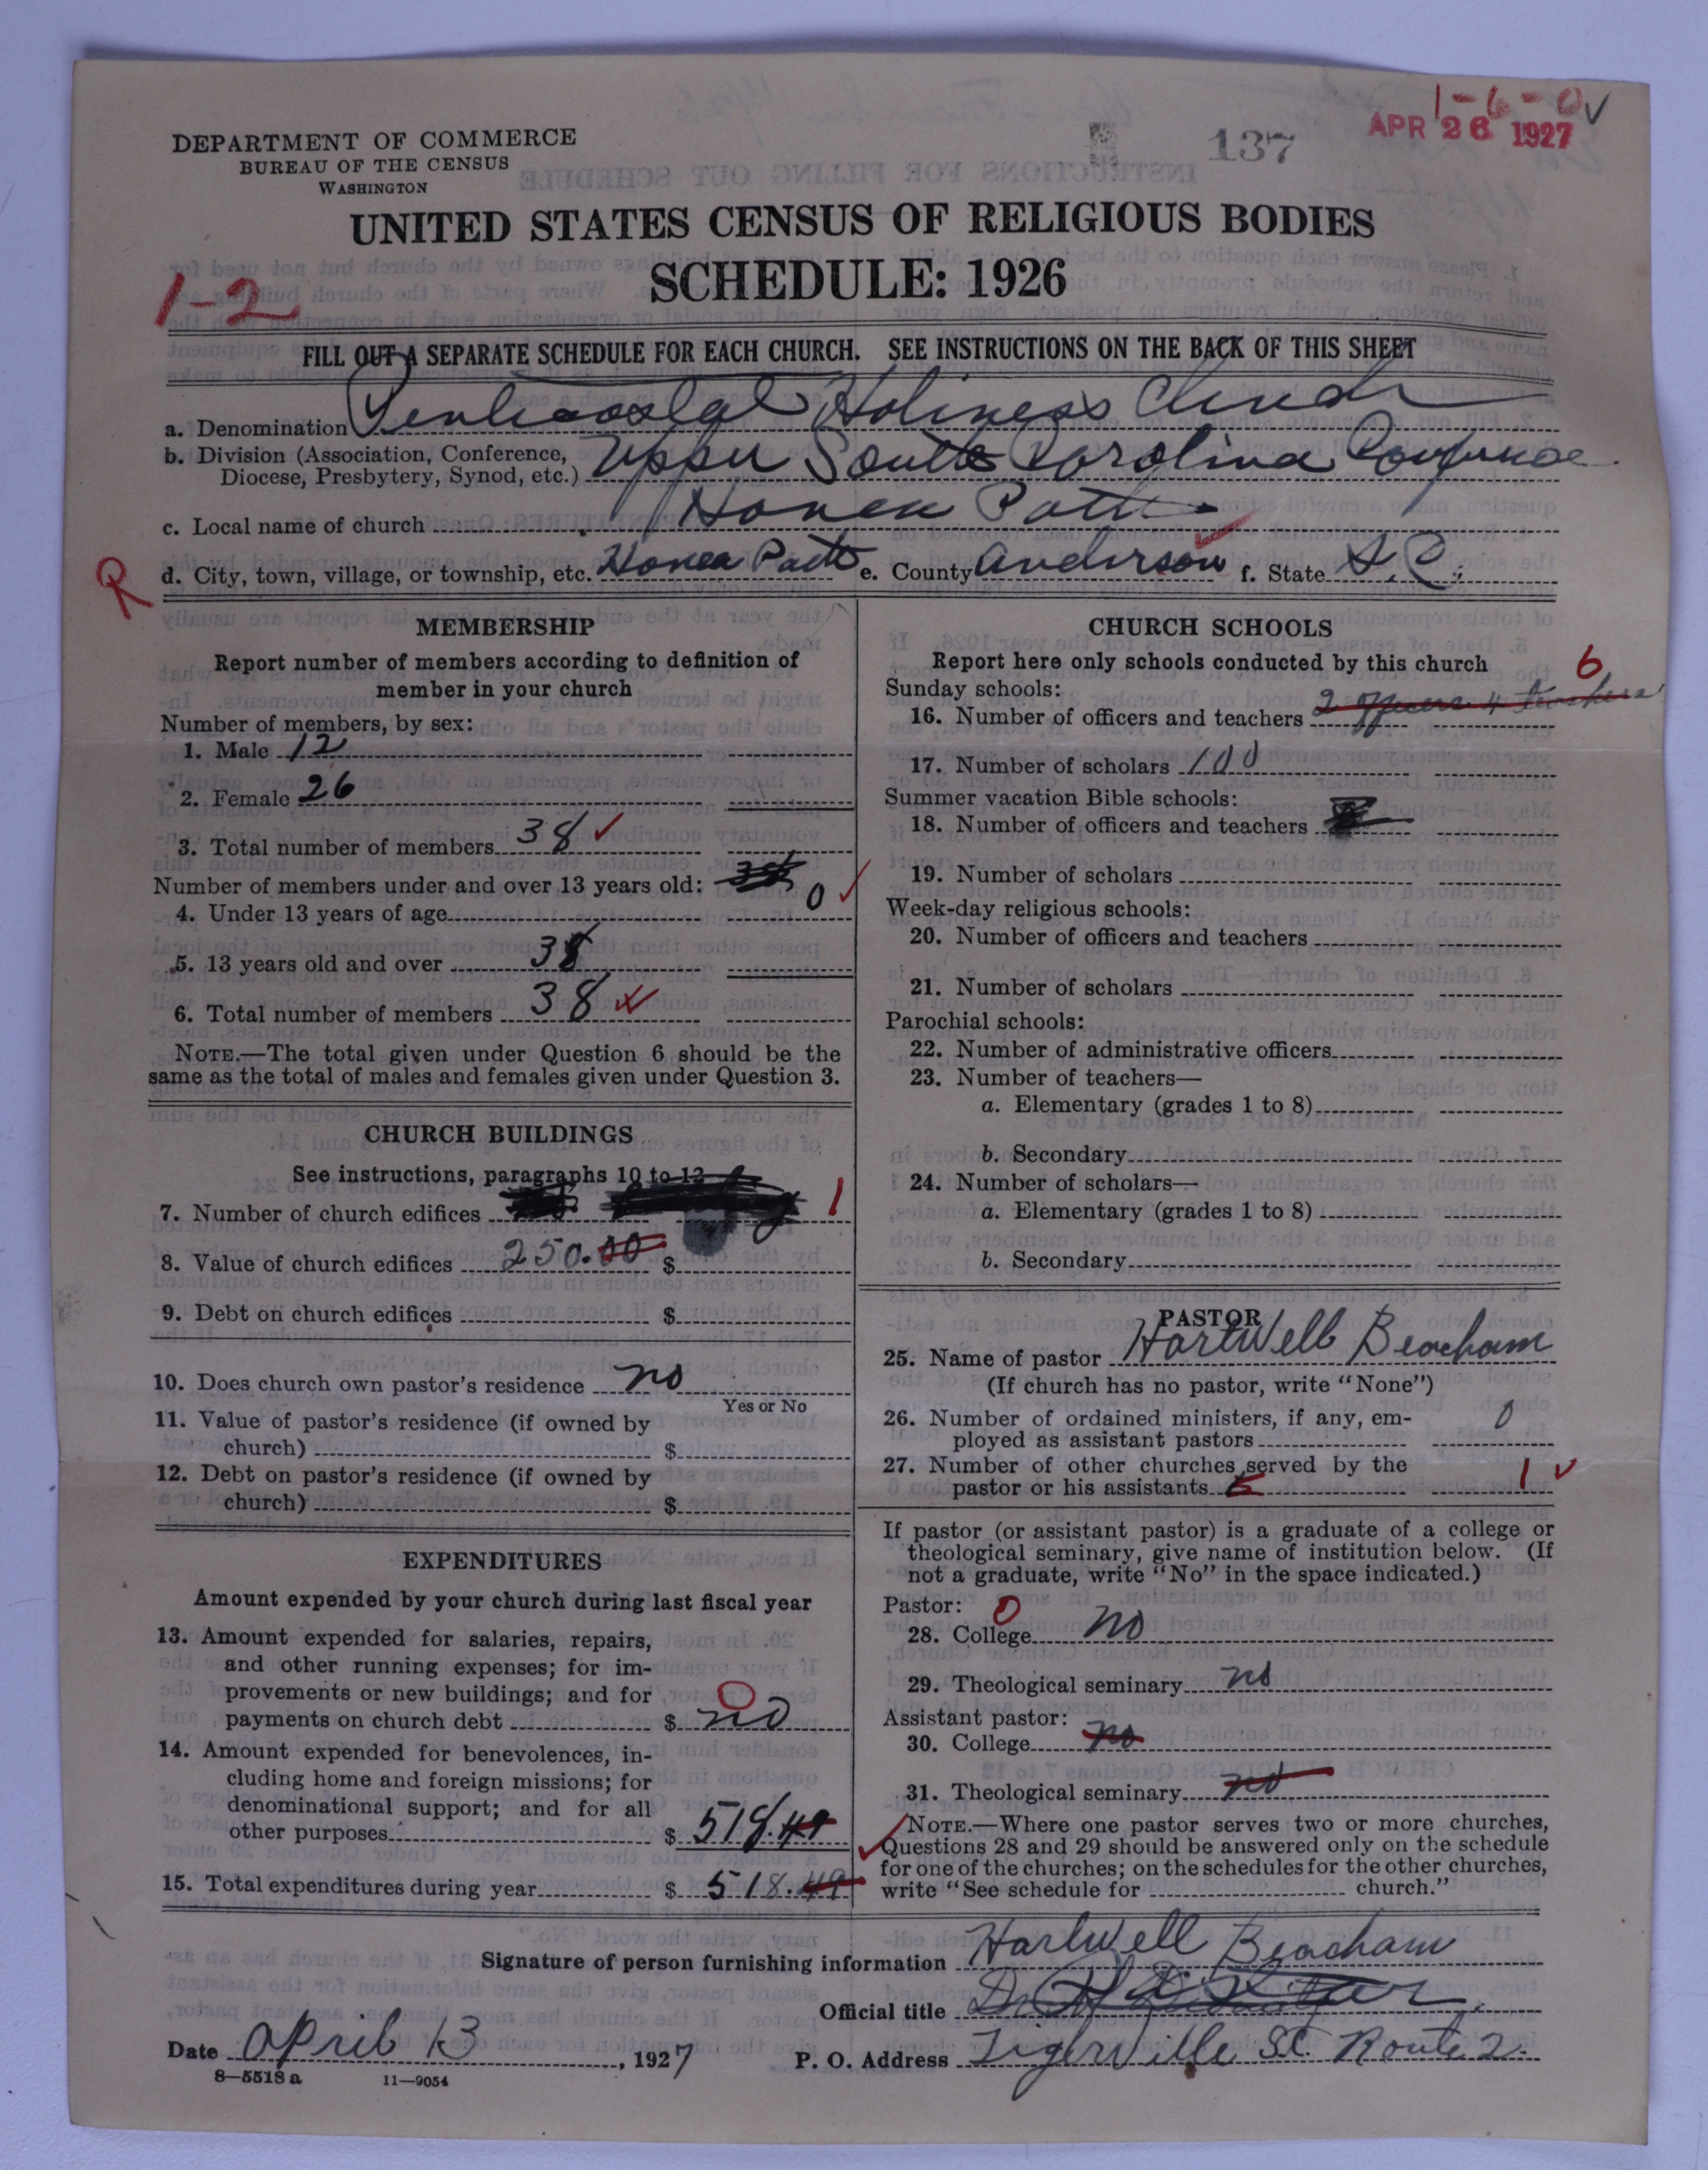 1-6-0 ✓
APR 26 1927
137
DEPARTMENT OF COMMERCE
BUREAU OF THE CENSUS
WASHINGTON
UNITED STATES CENSUS OF RELIGIOUS BODIES
SCHEDULE: 1926
1-2
FILL OUT A SEPARATE SCHEDULE FOR EACH CHURCH. SEE INSTRUCTIONS ON THE BACK OF THIS SHEET
a. Denomination Pentecostal Holiness Church
b. Division (Association, Conference, Diocese, Presbytery, Synod, etc.) Upper South Carolina Confrence
c. Local name of church Honea Path
R
d. City, town, village, or township, etc. Honea Path e. County Anderson f. State S.C.
MEMBERSHIP
Report number of members according to definition of
member in your church
Number of members, by sex:
1. Male 12
2. Female 26
3. Total number of members 38 ✓
Number of members under and over 13 years old:
4. Under 13 years of age 0 ✓
5. 13 years old and over 38
6. Total number of members 38
NOTE.—The total given under Question 6 should be the
same as the total of males and females given under Question 3.
CHURCH BUILDINGS
See instructions, paragraphs 10 to 12
7. Number of church edifices 1
8. Value of church edifices 250.00 $
9. Debt on church edifices $
10. Does church own pastor's residence no
Yes or No
11. Value of pastor's residence (if owned by
church) $
12. Debt on pastor's residence (if owned by
church) $
EXPENDITURES
Amount expended by your church during last fiscal year
13. Amount expended for salaries, repairs,
and other running expenses; for im-
provements or new buildings; and for
payments on church debt $ no 0
14. Amount expended for benevolences, in-
cluding home and foreign missions; for
denominational support; and for all
other purposes $ 518.49
15. Total expenditures during year $ 518.49
CHURCH SCHOOLS
Report here only schools conducted by this church
Sunday schools: 6
16. Number of officers and teachers 2 officers 4 teachers
17. Number of scholars 100
Summer vacation Bible schools:
18. Number of officers and teachers
19. Number of scholars
Week-day religious schools:
20. Number of officers and teachers
21. Number of scholars
Parochial schools:
22. Number of administrative officers
23. Number of teachers—
a. Elementary (grades 1 to 8)
b. Secondary
24. Number of scholars—
a. Elementary (grades 1 to 8)
b. Secondary
PASTOR
25. Name of pastor Hartwell Beacham
(If church has no pastor, write "None")
26. Number of ordained ministers, if any, em-
ployed as assistant pastors 0
27. Number of other churches served by the
pastor or his assistants 1 ✓
If pastor (or assistant pastor) is a graduate of a college or
theological seminary, give name of institution below. (If
not a graduate, write "No" in the space indicated.)
Pastor: 0
28. College no
29. Theological seminary no
Assistant pastor:
30. College no
31. Theological seminary no
NOTE.—Where one pastor serves two or more churches,
Questions 28 and 29 should be answered only on the schedule
for one of the churches; on the schedules for the other churches,
write "See schedule for church."
Signature of person furnishing information Hartwell Beacham
Official title
Date April 13, 1927
P. O. Address Tigerville S.C. Route 2.
8—5518a 11—9054